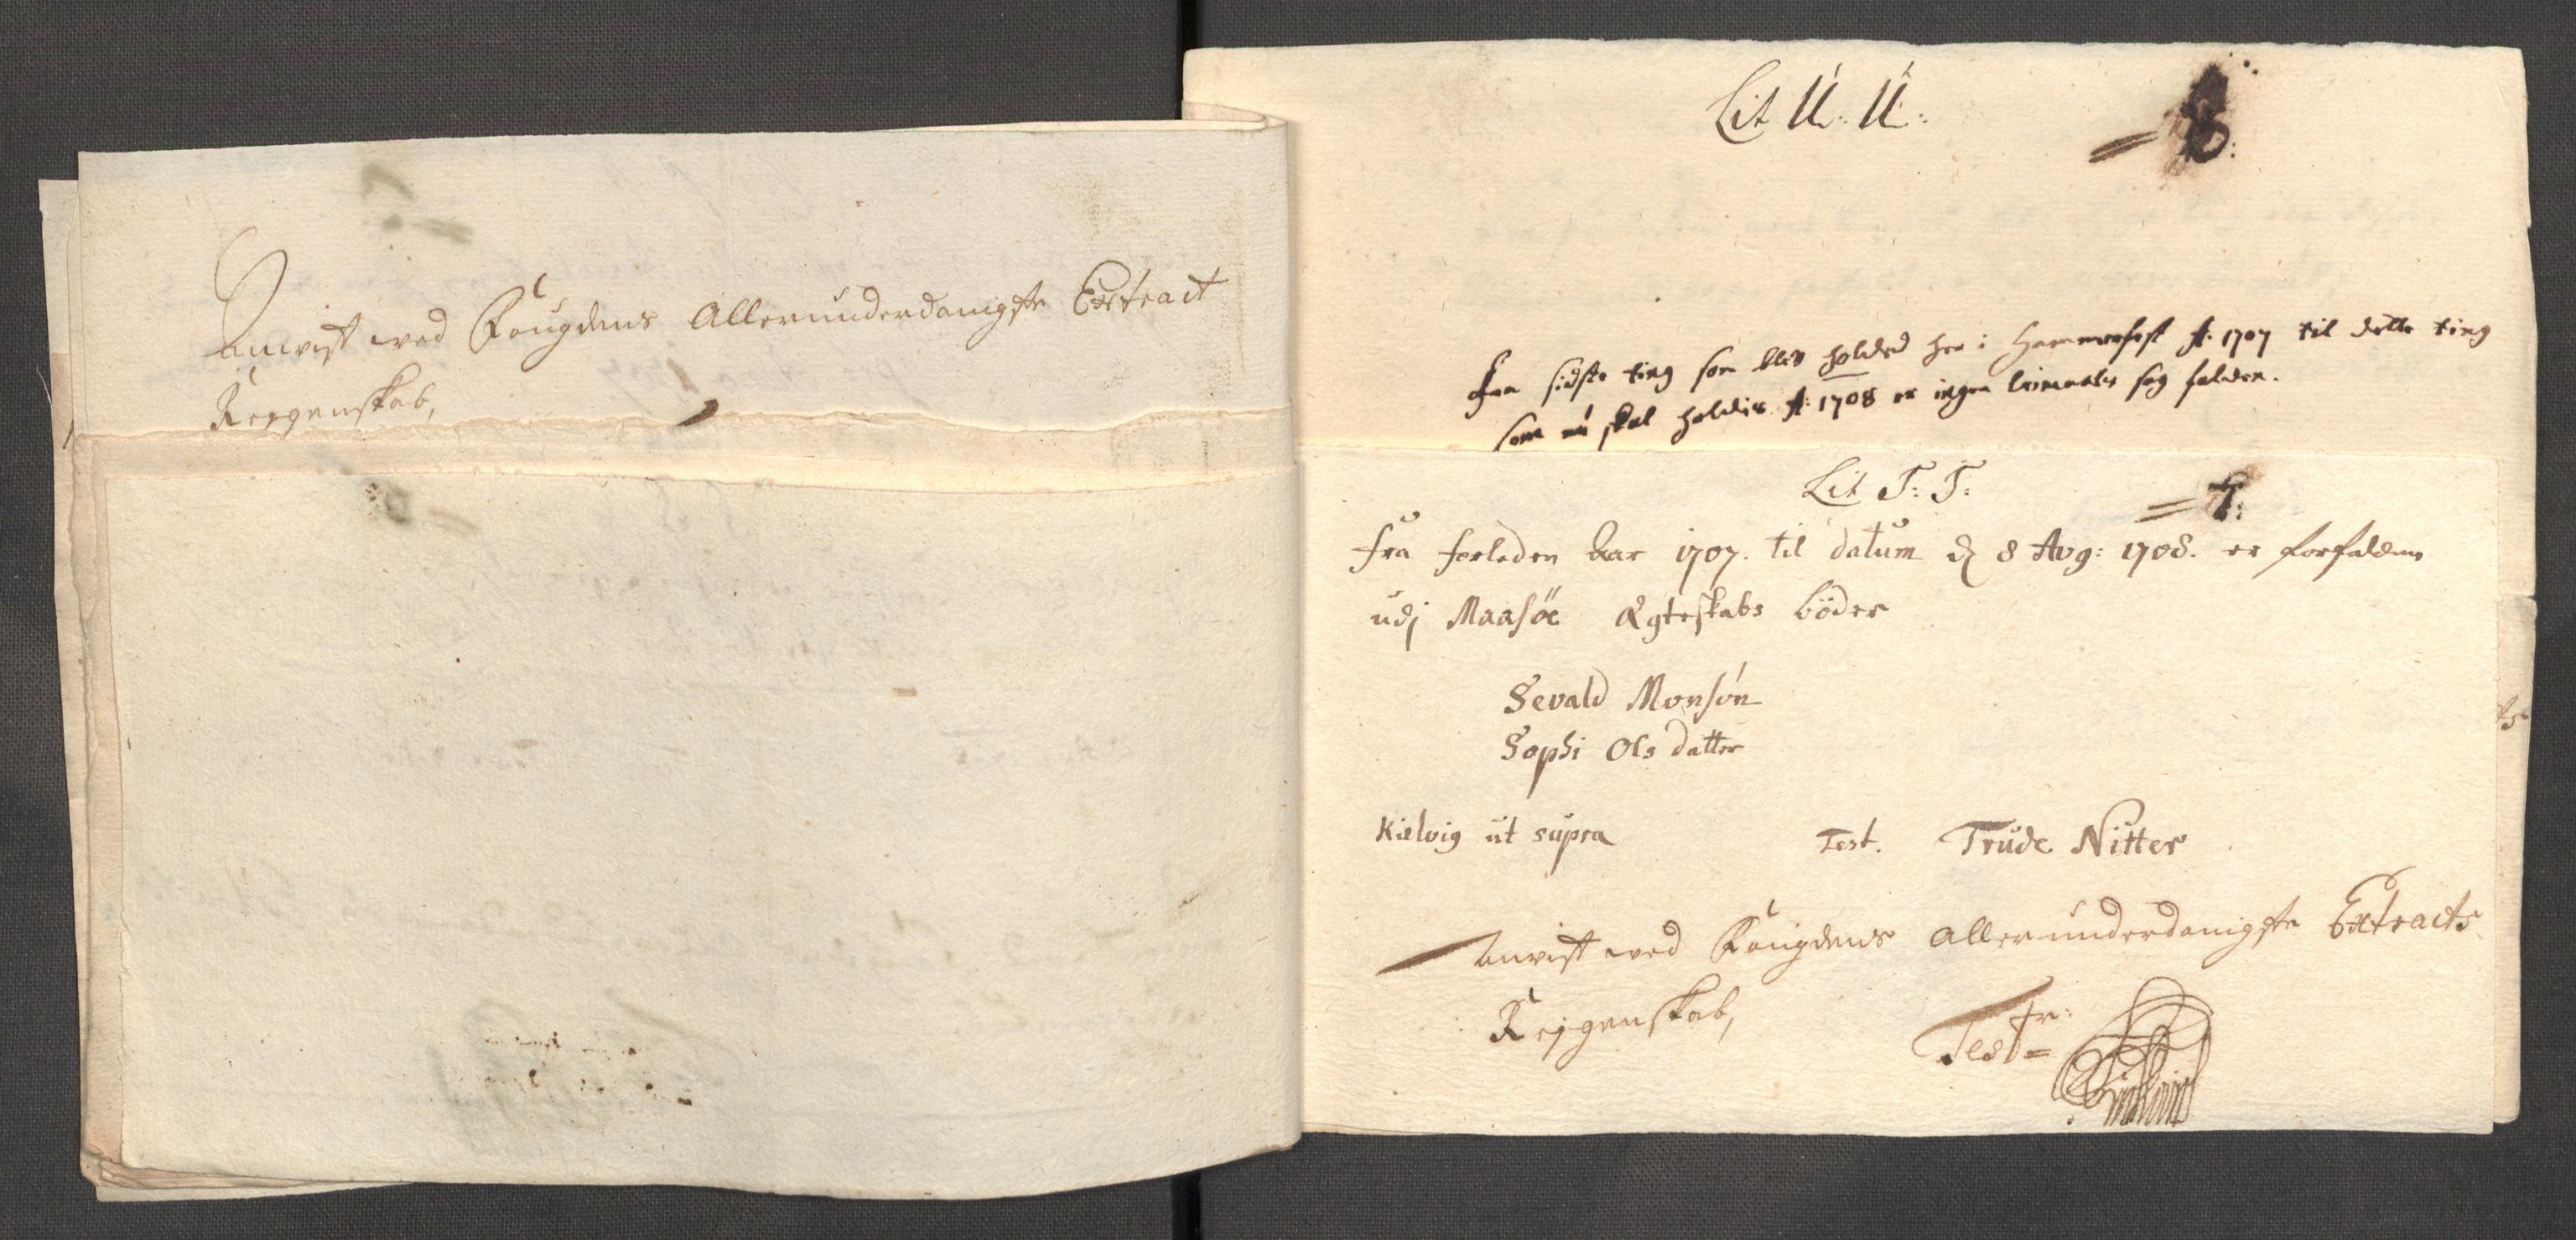 Anvist ved Fougdens Allerunderdanigste Extract
Regenskab,
Lit U: U:
Fra sidste ting som blev holded her i Hammerfest A: 1707 til dette ting
som nu skal holdis A: 1708 er ingen Criminales sag falden.
Lit T: T:
T:
Fra forleden Aar 1707. til datum d 8 Aug: 1708. er forfalden
udj Maasøe Ægteskabs böder
Sevald Monsön
Sophi Ols datter
Kielvig ut supra Test. Trude Nitter
Anvist ved Fougdens Allerunderdanigste Extracts
Rejgenskab,
Testr: